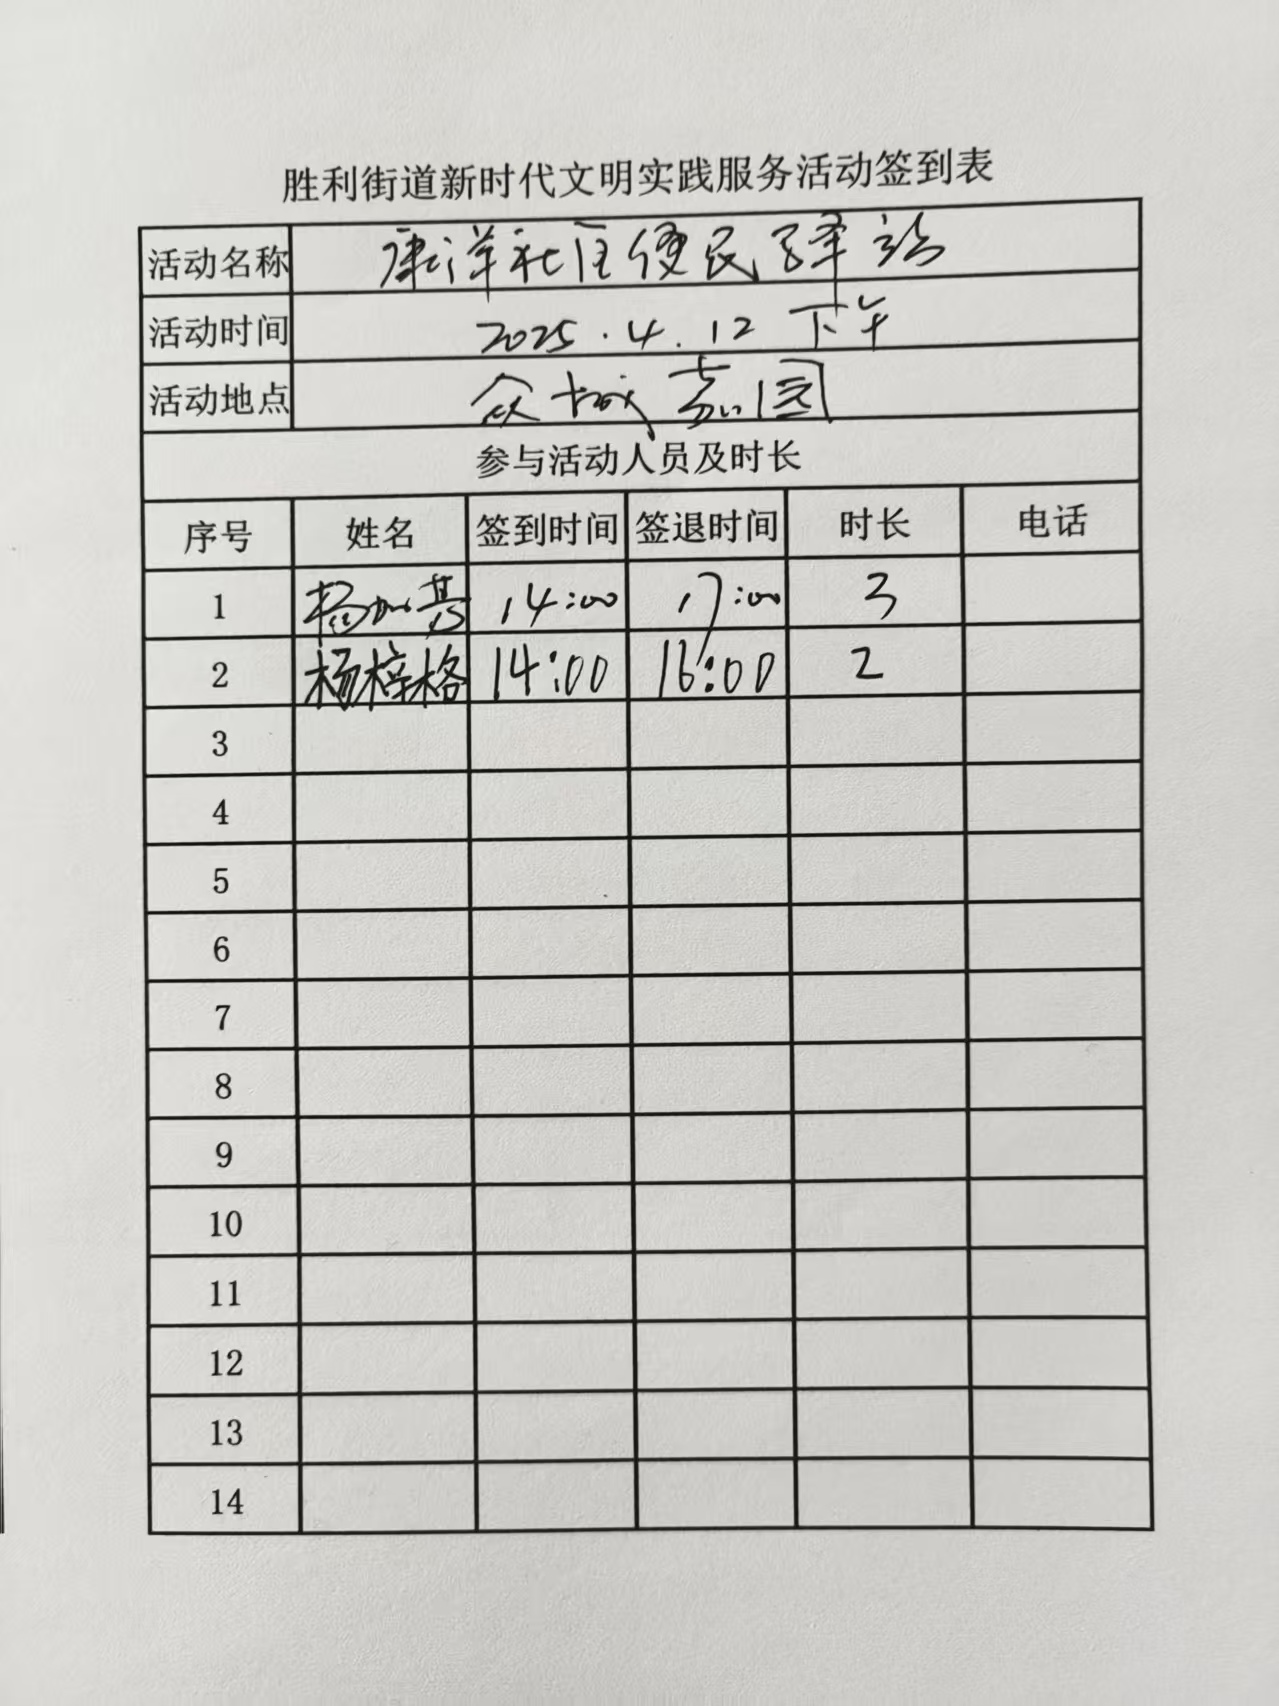 胜利街道新时代文明实践服务活动签到表
活动名称 康洋社区便民驿站
活动时间 2025.4.12 下午
活动地点 众城嘉园
参与活动人员及时长
序号 姓名 签到时间 签退时间 时长 电话
1 杨 14:00 17:00 3
2 杨梓格 14:00 16:00 2
3
4
5
6
7
8
9
10
11
12
13
14